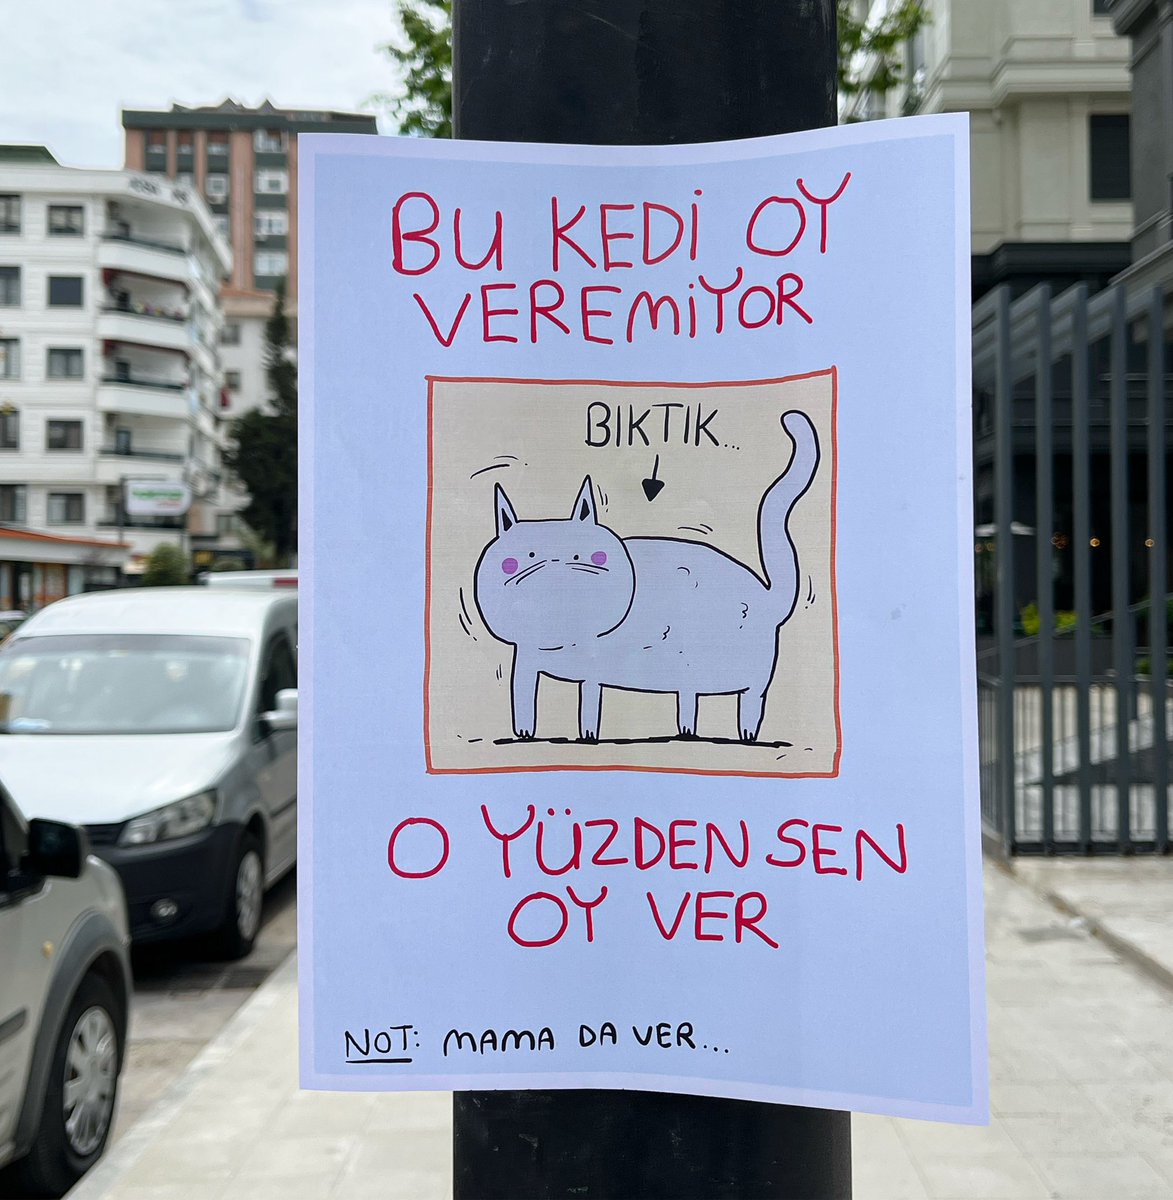 BU KEDİ OY
VEREMİYOR
BIKTIK...
O YÜZDEN SEN
OY VER
NOT: MAMA DA VER...